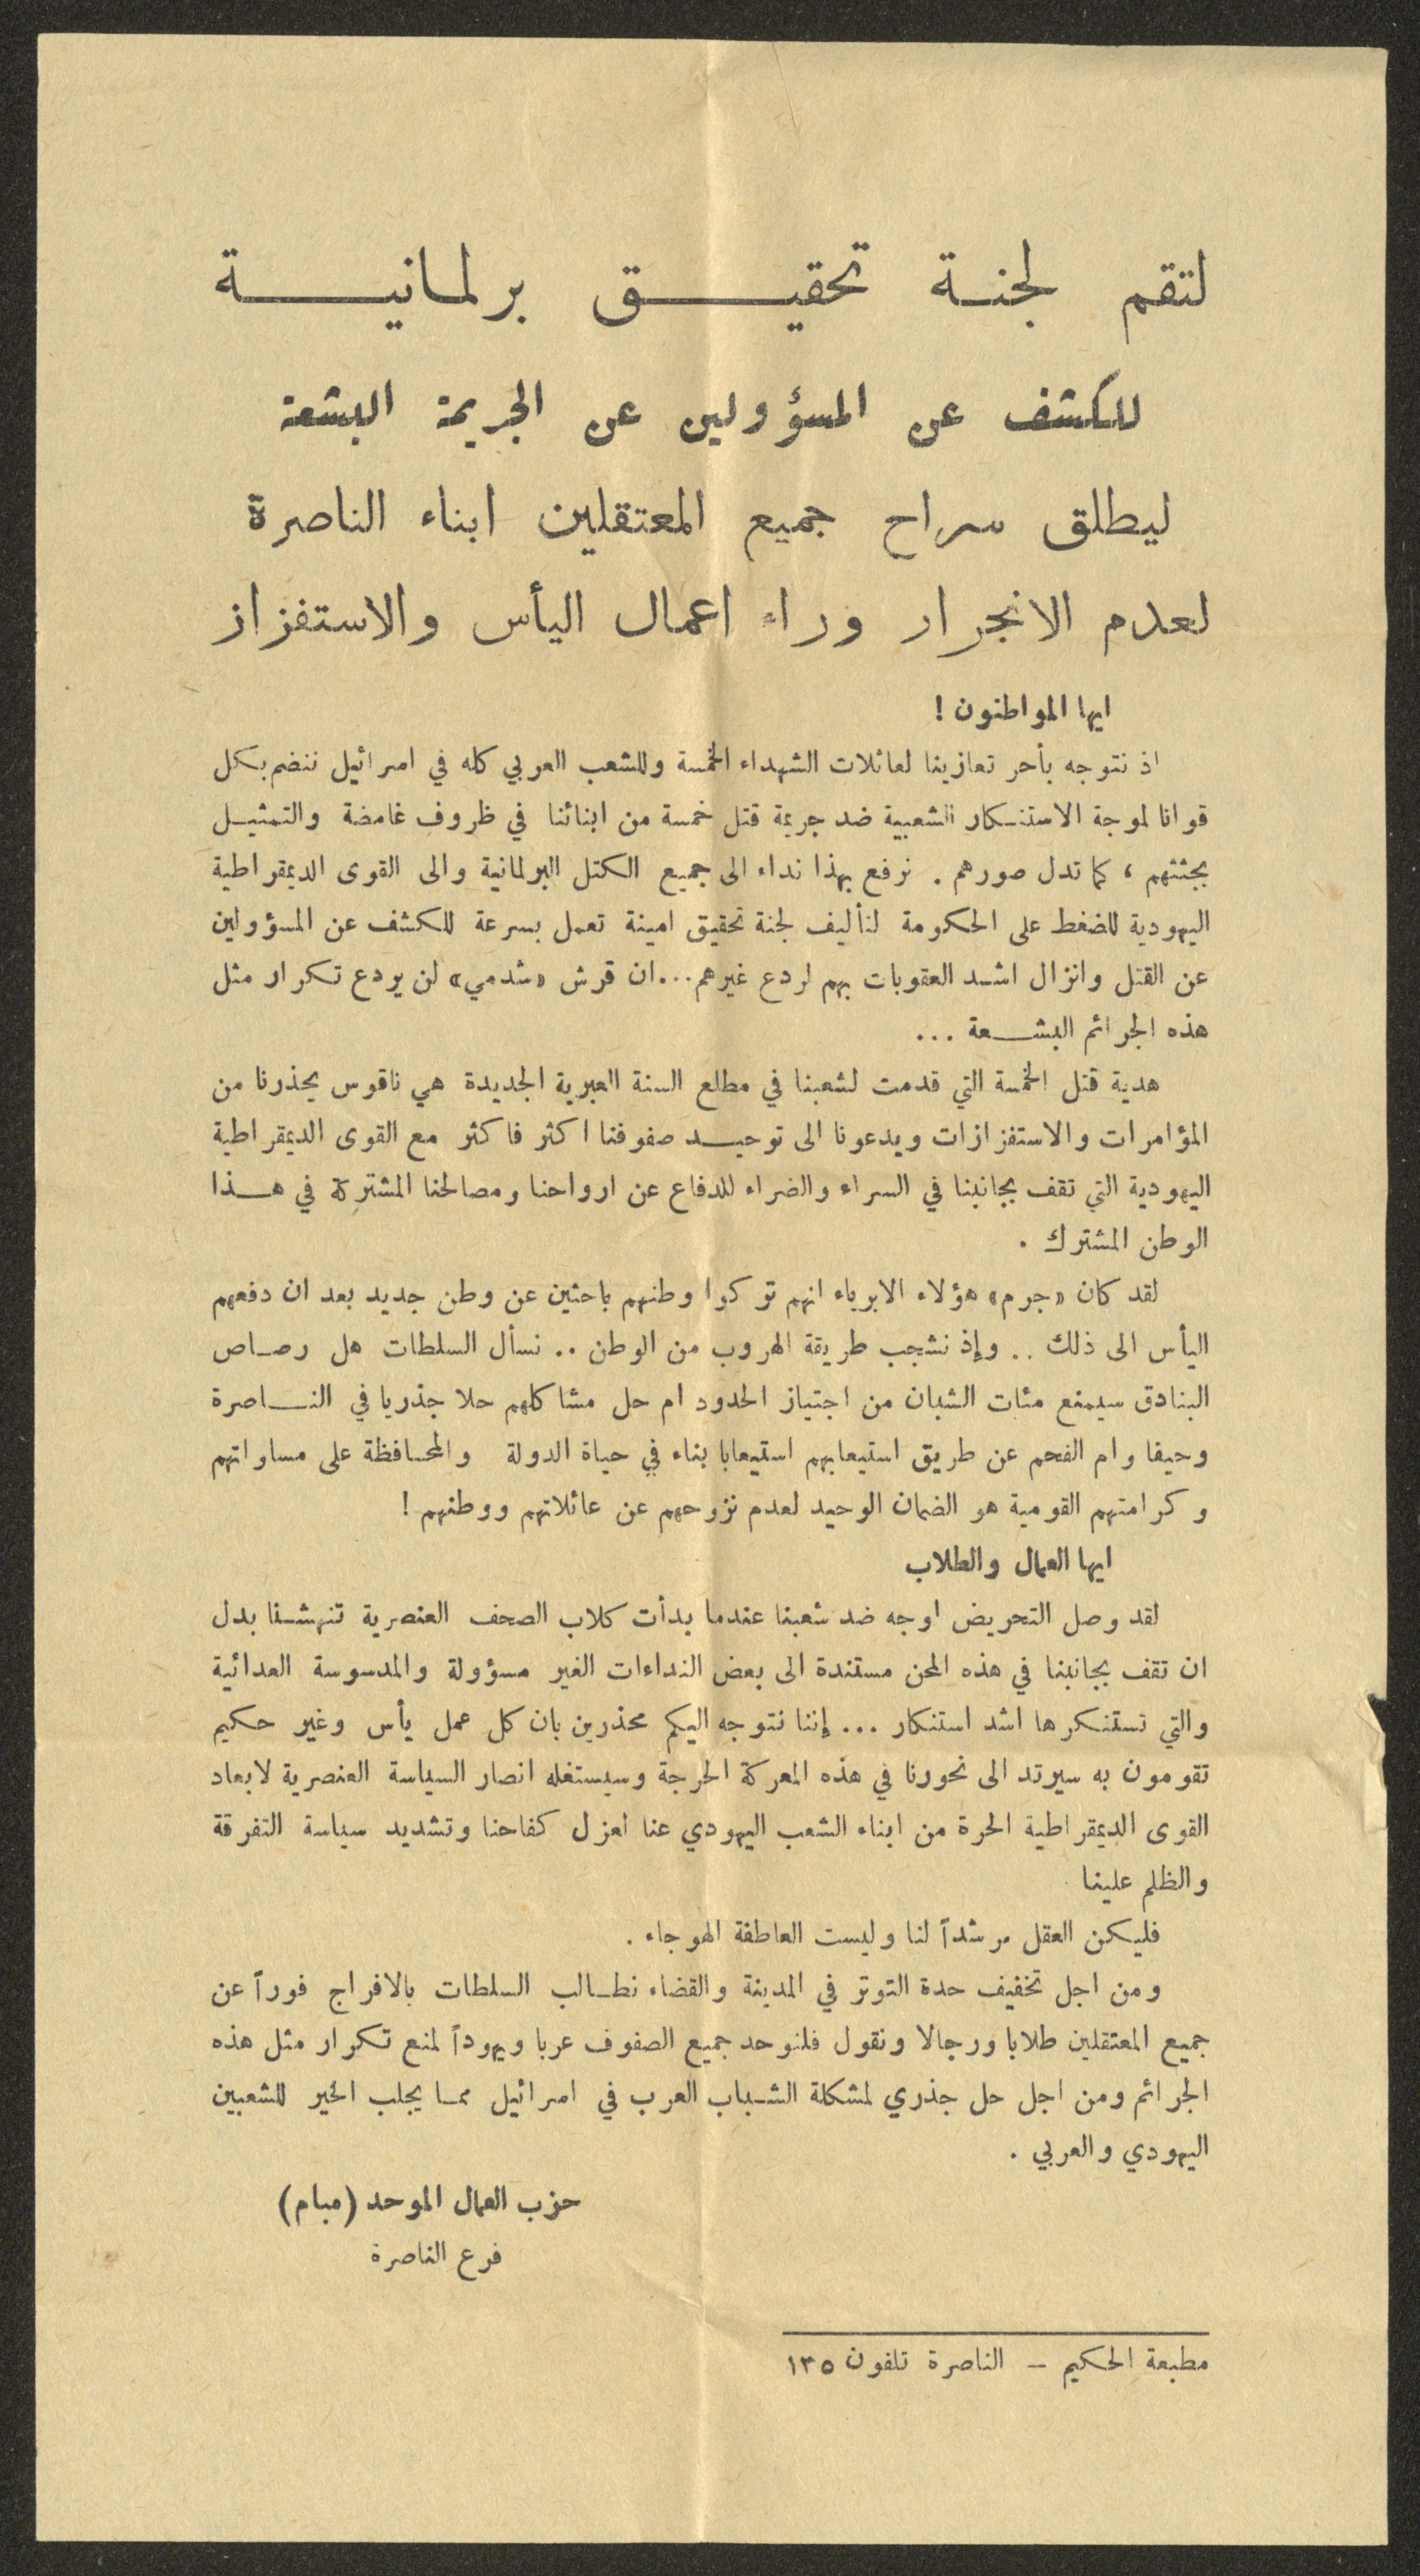 لتقم لجنة تحقيق برلمانية
للكشف عن المسؤولين عن الجريمة البشعة
ليطلق سراح جميع المعتقلين ابناء الناصرة
لعدم الانجرار وراء اعمال اليأس والاستفزاز
ايها المواطنون !
اذ نتوجه بأحر تعازينا لعائلات الشهداء الخمسة وللشعب العربي كله في اسرائيل ننضم بكل
قوانا لموجة الاستنكار الشعبية ضد جريمة قتل خمسة من ابنائنا في ظروف غامضة والتمثيل
بجثثهم ، كما تدل صورهم . نرفع بهذا نداء الى جميع الكتل البرلمانية والى القوى الديمقراطية
اليهودية للضغط على الحكومة لتأليف لجنة تحقيق امينة تعمل بسرعة للكشف عن المسؤولين
عن القتل وانزال اشد العقوبات بهم لردع غيرهم... ان قرش «شدمي» لن يردع تكرار مثل
هذه الجرائم البشعة ...
هدية قتل الخمسة التي قدمت لشعبنا في مطلع السنة العبرية الجديدة هي ناقوس يحذرنا من
المؤامرات والاستفزازات ويدعونا الى توحيد صفوفنا اكثر فاكثر مع القوى الديمقراطية
اليهودية التي تقف بجانبنا في السراء والضراء للدفاع عن ارواحنا ومصالحنا المشتركة في هذا
الوطن المشترك .
لقد كان «جرم» هؤلاء الابرياء انهم تركوا وطنهم باحثين عن وطن جديد بعد ان دفعهم
اليأس الى ذلك .. وإذ نشجب طريقة الهروب من الوطن .. نسأل السلطات هل رصاص
البنادق سيمنع مئات الشبان من اجتياز الحدود ام حل مشاكلهم حلا جذريا في الناصرة
وحيفا وام الفحم عن طريق استيعابهم استيعابا بناء في حياة الدولة والمحافظة على مساواتهم
وكرامتهم القومية هو الضمان الوحيد لعدم نزوحهم عن عائلاتهم ووطنهم !
ايها العمال والطلاب
لقد وصل التحريض اوجه ضد شعبنا عندما بدأت كلاب الصحف العنصرية تنهشنا بدل
ان تقف بجانبنا في هذه المحن مستندة الى بعض النداءات الغير مسؤولة والمدسوسة العدائية
والتي نستنكرها اشد استنكار ... إننا نتوجه اليكم محذرين بان كل عمل يأس وغير حكيم
تقومون به سيرتد الى نحورنا في هذه المعركة الحرجة وسيستغله انصار السياسة العنصرية لابعاد
القوى الديمقراطية الحرة من ابناء الشعب اليهودي عنا لعزل كفاحنا وتشديد سياسة التفرقة
والظلم علينا
فليكن العقل مرشداً لنا وليست العاطفة الهوجاء .
ومن اجل تخفيف حدة التوتر في المدينة والقضاء نطالب السلطات بالافراج فوراً عن
جميع المعتقلين طلابا ورجالا ونقول فلنوحد جميع الصفوف عربا ويهوداً لمنع تكرار مثل هذه
الجرائم ومن اجل حل جذري لمشكلة الشباب العرب في اسرائيل مما يجلب الخير للشعبين
اليهودي والعربي .
حزب العمال الموحد (مبام)
فرع الناصرة
مطبعة الحكيم – الناصرة تلفون ١٣٥